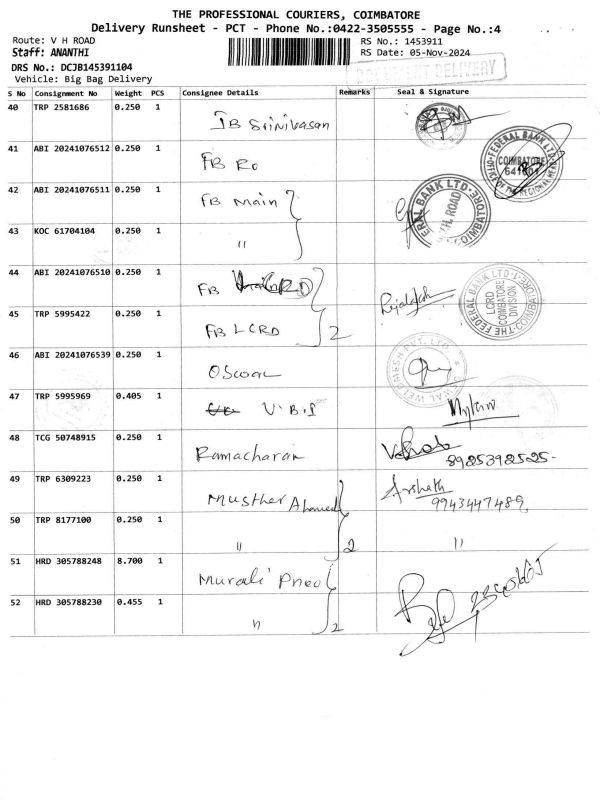 THE PROFESSIONAL COURIERS, COIMBATORE
Delivery Runsheet - PCT - Phone No.:0422-3505555 - Page No.:4
Route: V H ROAD
RS No.: 1453911
Staff: ANANTHI
RS Date: 05-Nov-2024
DRS No.: DCJB145391104
DOCUMENT DELIVERY
Vehicle: Big Bag Delivery
S No Consignment No Weight PCS Consignee Details Remarks Seal & Signature
40 TRP 2581686 0.250 1 IB Srinivasan
41 ABI 20241076512 0.250 1 FB RO
FEDERAL BANK LTD
COIMBATORE
641001
42 ABI 20241076511 0.250 1 FB Main
BANK LTD
V.H. ROAD
COIMBATORE
43 KOC 61704104 0.250 1 "
44 ABI 20241076510 0.250 1 FB LCRD
THE FEDERAL BANK LTD
LCRD
COIMBATORE
DIVISION
45 TRP 5995422 0.250 1 FB LCRD 2
46 ABI 20241076539 0.250 1 Oswal
47 TRP 5995969 0.405 1 U.B.I
48 TCG 50748915 0.250 1 Ramacharan
8925398525-
49 TRP 6309223 0.250 1 Musther Ahamed Arshath
9943447489
50 TRP 8177100 0.250 1 " 2 "
51 HRD 305788248 8.700 1 Murali Pneo
52 HRD 305788230 0.455 1 " 2